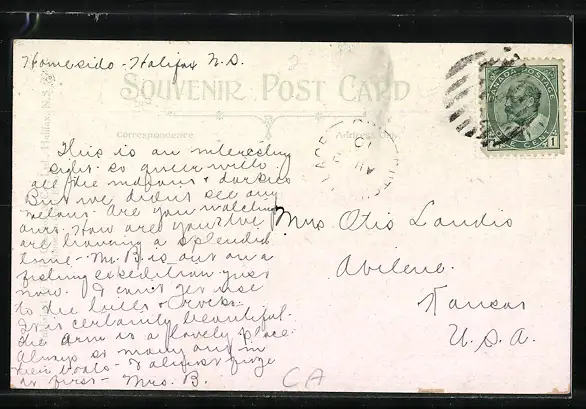 Homeside - Halifax N.S.
SOUVENIR POST CARD
Correspondence
Address
CANADA POSTAGE
ONE CENT
1
This is an interesting
sight - so queer with
all the indians & darkies
But we didn't see any
melons. Are you watching
ours. How are you? We
are having a splendid
time - Mr. B. is out on a
fishing expedition just
now. I can't get use
to the hills & rocks.
It is certainly beautiful.
the Arm is a lovely place.
Always so many out in
their boats - I almost froze
at first - Mrs. B.
Mrs Otis Landis
Abilene.
Kansas
U.S.A.
CA
Halifax, N.S.